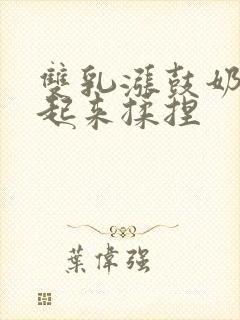 雙乳漲鼓奶
起来揉捏
葉偉强